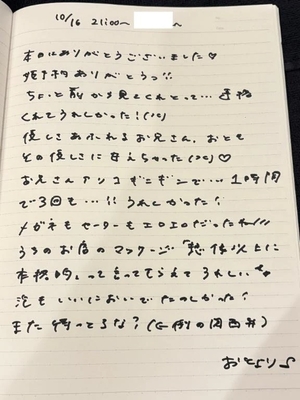 10/16 21:00〜 〜
本日はありがとうございました♡
ありがとうっ!!
ちょっと前から見てくれとって…
くれてうれしかった!
優しさあふれるお兄さん、おとも
その優しさに甘えちゃった♡
お兄さん ギンギンで…1時間
で3回も…!! うれしかった!
メガネもセーターもエロエロだったね///
うちのお店のマッサージ「想像以上に
本格的」って言ってもらえてうれしい
もいいにおいでたのしかった!
また待ってるな?(←例の関西弁)
おとより